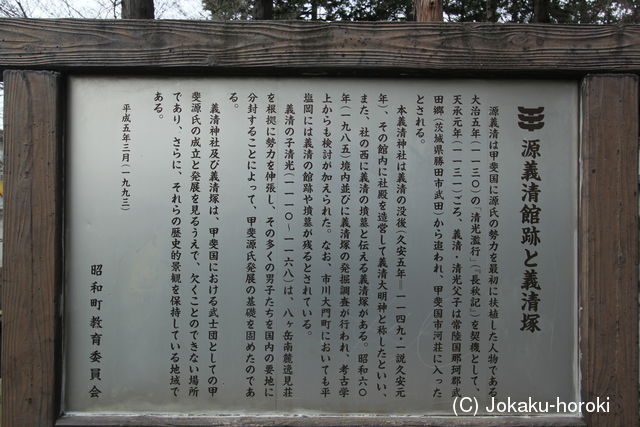 源義清館跡と義清塚
源義清は甲斐国に源氏の勢力を最初に扶植した人物である
大治五年（一一三〇）の「清光濫行」（『長秋記』）を契機として、
天承元年（一一三一）ごろ、義清・清光父子は常陸国那珂郡武
田郷（茨城県勝田市武田）から追われ、甲斐国市河荘に入った
とされる。
本義清神社は義清の没後（久安五年＝一一四九・一説久安元
年）、その館内に社殿を造営して義清大明神と称したといい、
また、社の西に義清の墳墓と伝える義清塚がある。昭和六〇
年（一九八五）境内並びに義清塚の発掘調査が行われ、考古学
上からも検討が加えられた。なお、市川大門町においても平
塩岡には義清の館跡や墳墓が残るとされている。
義清の子清光（一一一〇〜一一六八）は、八ヶ岳南麓逸見荘
を根拠に勢力を伸張し、その多くの男子たちを国内の要地に
分封することによって、甲斐源氏発展の基礎を固めたのであ
る。
義清神社及び義清塚は、甲斐国における武士団としての甲
斐源氏の成立と発展を見るうえで、欠くことのできない場所
であり、さらに、それらの歴史的景観を保持している地域で
ある。
平成五年三月（一九九三）
昭和町教育委員会
(C) Jokaku-horoki